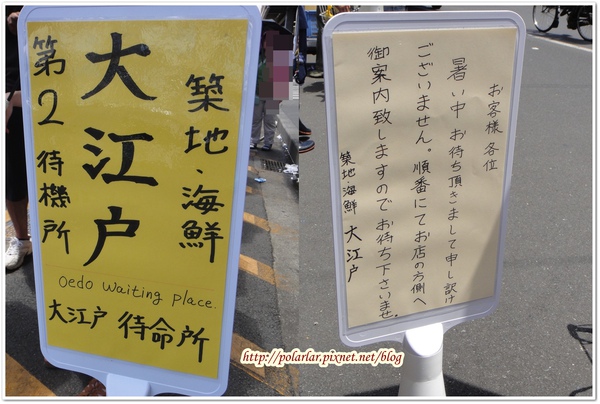 築地・海鮮
大江户
第2待機所
Oedo Waiting Place.
大江户 待命所
お客様各位
暑い中 お待ち頂きまして申し訳け
ございません。順番にてお店の方側へ
御案内致しますのでお待ち下さいませ。
築地海鮮 大江户
http://polarlar.pixnet.net/blog